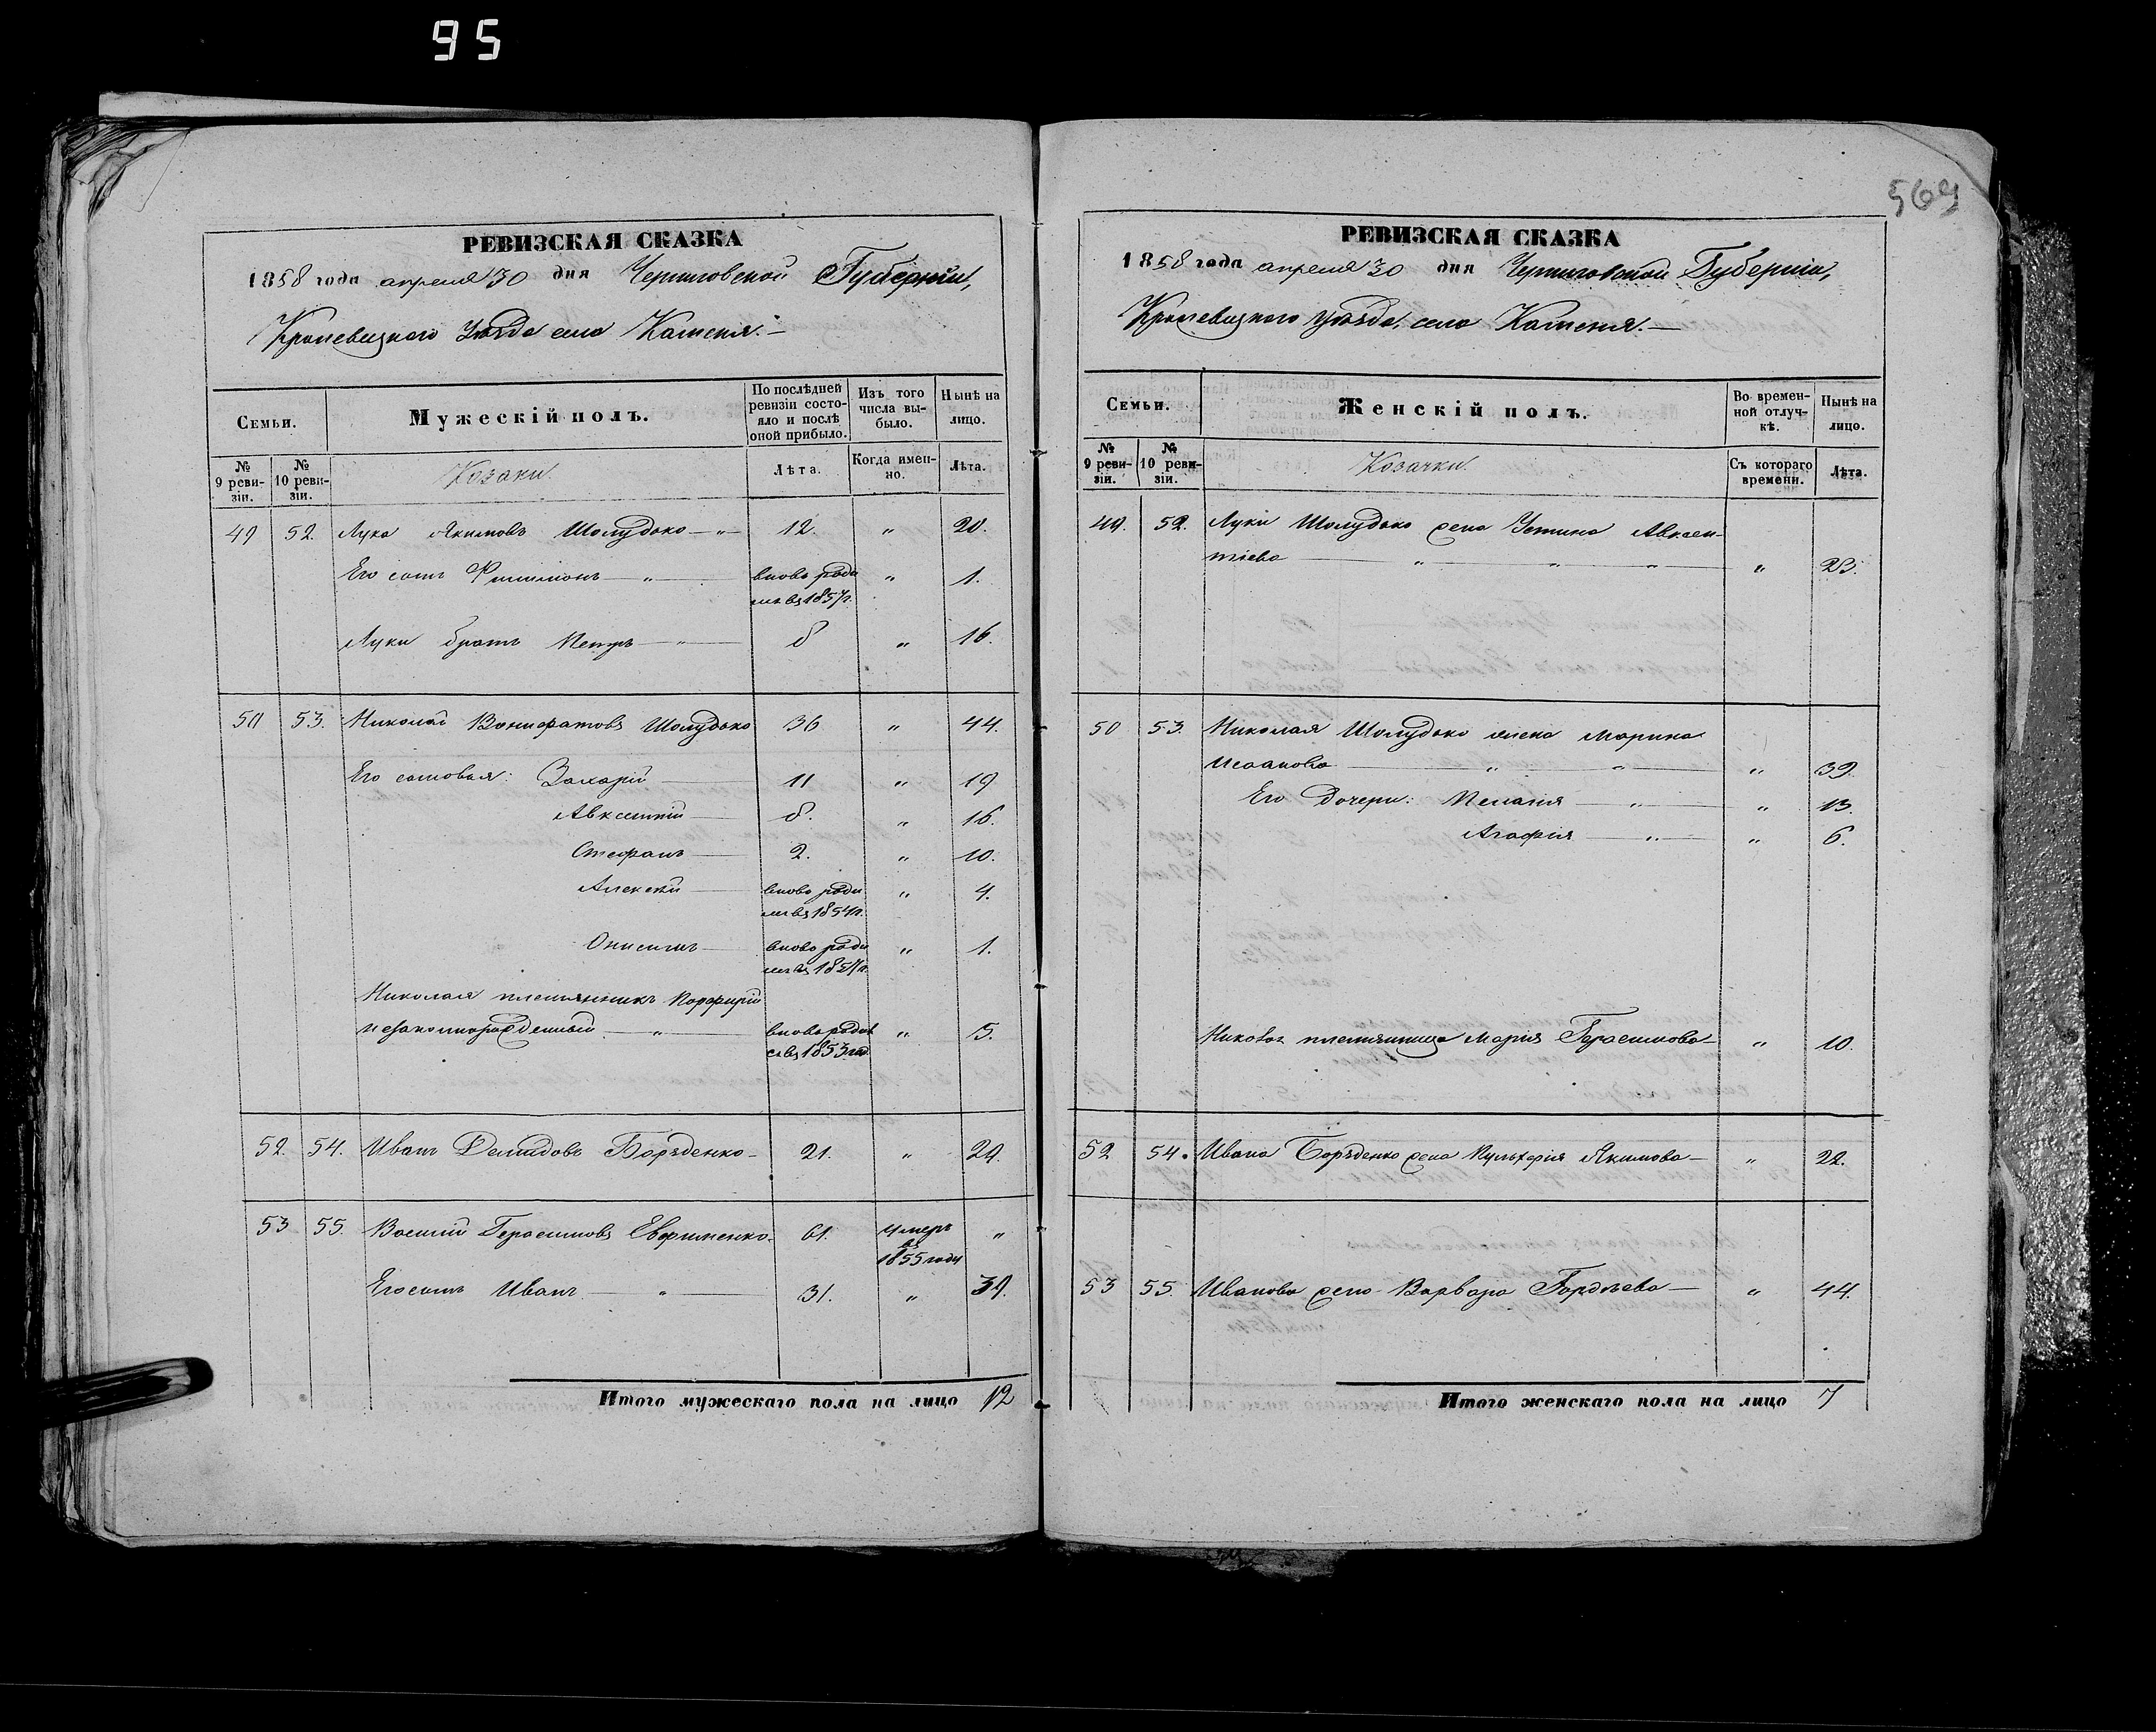 95
569
РЕВИЗСКАЯ СКАЗКА
1858 года апреля 30 дня Черниговской Губернии,
Кролевецкого Уѣзда села Каменя.—
Семьи.
Мужескій полъ.
По послѣдней ревизіи состояло и послѣ оной прибыло.
Изъ того числа выбыло.
Нынѣ на лицо.
№ 9 ревизіи.
№ 10 ревизіи.
Козаки.
Лѣта.
Когда именно.
Лѣта.
49 52. Лука Якимовъ Шолудько — „ — 12. „ 20.
Его сынъ Филимонъ — „ — вновь роди „ 1.
лся въ 1857 г.
Луки братъ Петръ — „ — 8 „ 16.
50 53. Николай Вонифатовъ Шолудько 36 „ 44.
Его сыновья: Захарій — 11 „ 19
Авксентій — 8. „ 16.
Стефанъ — 2. „ 10.
Алексѣй — вновь роди „ 4.
лся въ 1854 г.
Онисимъ — вновь роди „ 1.
лся въ 1857 г.
Николая племянникъ Порфирій
незаконнорожденный — „ — вновь родил „ 5.
ся въ 1853 год.
52. 54. Иванъ Демидовъ Борѣденко — 21. „ 29.
53 55. Василій Герасимовъ Евфименко. 61. умеръ „
въ
1855 году
Его сынъ Иванъ — „ — 31. „ 39.
Итого мужескаго пола на лицо 12
РЕВИЗСКАЯ СКАЗКА
1858 года апреля 30 дня Черниговской Губернии,
Кролевецкого уѣзда, села Каменя.—
Семьи.
Женскій полъ.
Во временной отлучкѣ.
Нынѣ на лицо.
№ 9 ревизіи.
№ 10 ревизіи.
Козачки.
Съ котораго времени.
Лѣта.
49. 52. Луки Шолудько жена Устина Авксен-
тіева — „ — „ — „ — „ 23.
50 53. Николая Шолудько жена Марина
Исаакова — „ — „ — „ 39.
Его Дочери: Меланія — „ — „ 13.
Агафія — „ — „ 6.
племянница Марія Герасимова — „ 10.
52 54. Ивана Борѣденко жена Пульхерія Якимова — „ 22.
53 55. Иванова жена Варвара Гордѣева — „ 44.
Итого женскаго пола на лицо 7